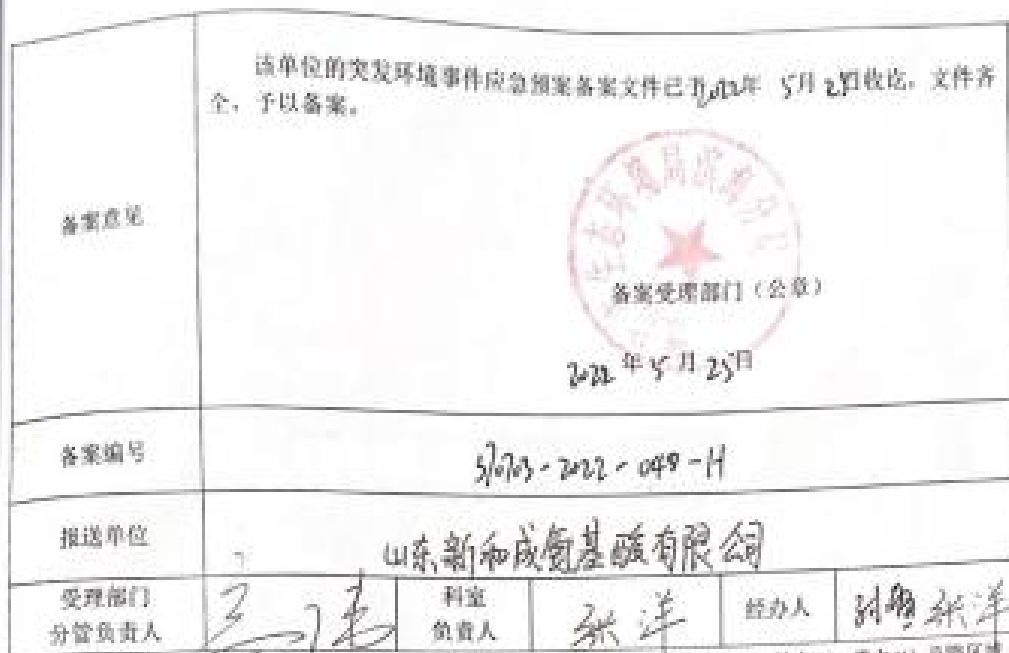 该单位的突发环境事件应急预案备案文件已于2022年 5月25日收讫,文件齐
全,予以备案。
备案意见
生态环境局滨海分局
备案受理部门(公章)
2022年5月25日
备案编号
370703-2022-048-H
报送单位
山东新和成氨基酸有限公司
受理部门
分管负责人
科室
负责人
张洋
经办人
张洋